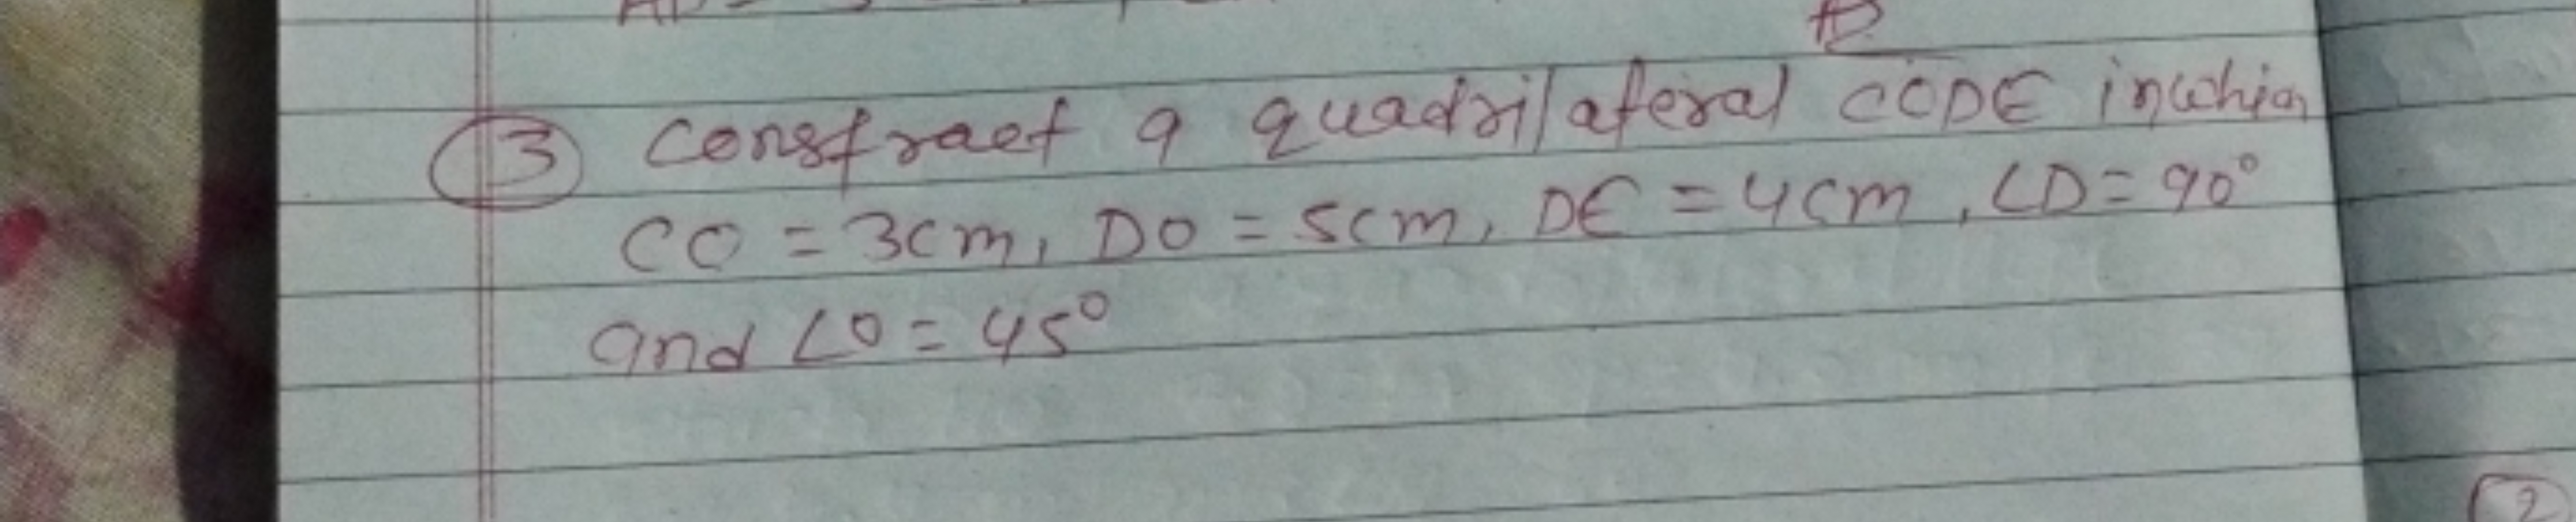 ③ Constract a quadrilateral CODE in which
CO = 3cm, DO = 5cm, DE = 4cm, ∠D = 90°
and ∠O = 45°
2